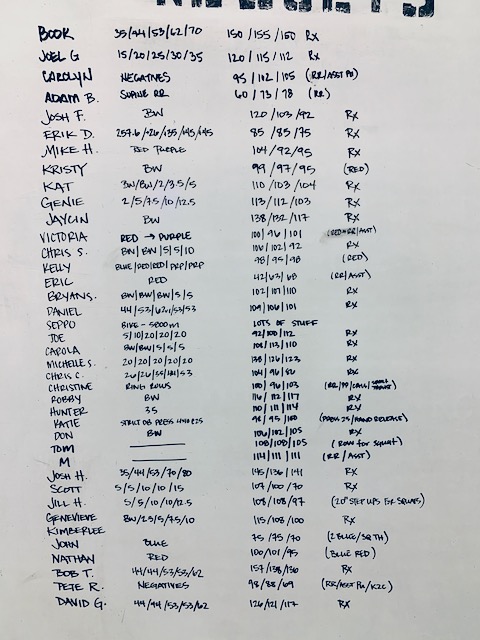 BOOK 35/44/53/62/70 150/155/150 Rx
JOEL G 15/20/25/30/35 120/115/112 Rx
CAROLYN NEGATIVES 95/102/105 (RR/ASST PU)
ADAM B. SUPINE RR 60/73/78 (RR)
JOSH F. BW 120/103/92 Rx
ERIK D. 85/85/75 Rx
MIKE H. RED PURPLE 104/92/95 Rx
KRISTY BW 99/97/95 (RED)
KAT BW/BW/2/3.5/5 110/103/104 Rx
GENIE 2/5/7.5/10/12.5 113/112/103 Rx
JAYLIN BW 138/132/117 Rx
VICTORIA RED → PURPLE 100/96/101
CHRIS S. BW/BW/5/5/10 106/102/92 Rx
KELLY BLUE/RED/RED/PRP/PRP 98/95/98 (RED)
ERIC RED 42/63/68 (RR/ASST)
BRYAN S. BW/BW/BW/5/5 102/107/110 Rx
DANIEL 109/106/101 Rx
SEPPO BIKE - 5000m LOTS OF STUFF
JOE 5/10/20/20/20 92/100/112 Rx
CAROLA BW/BW/5/5/5 108/113/110 Rx
MICHELLE S. 20/20/20/20/20 138/126/123 Rx
CHRIS C. 104/96/86 Rx
CHRISTINE RING ROWS 100/96/103
ROBBY BW 116/112/117 Rx
HUNTER 35 110/111/114 Rx
KATIE STRICT DB PRESS 98/95/100 (PRESS 25/HAND RELEASE)
DON BW 106/102/105 Rx
TOM 108/108/105 (ROW for SQUAT)
M 114/111/111 (RR/ASST)
JOSH H. 35/44/53/70/80 145/136/141 Rx
SCOTT 5/5/10/10/15 107/100/70 Rx
JILL H. 5/5/10/10/12.5 108/108/97 (20" STEP UPS FOR SQUATS)
GENEVIEVE BW/2.5/5/7.5/10 115/108/100 Rx
KIMBERLEE
JOHN BLUE 75/75/70 (2 BLUE/SQ TH)
NATHAN RED 100/101/95 (BLUE RED)
BOB T. 44/44/53/53/62 157/138/136 Rx
PETE R. NEGATIVES 98/88/69 (RR/ASST PU/K2C)
DAVID G. 44/44/53/53/62 126/121/117 Rx